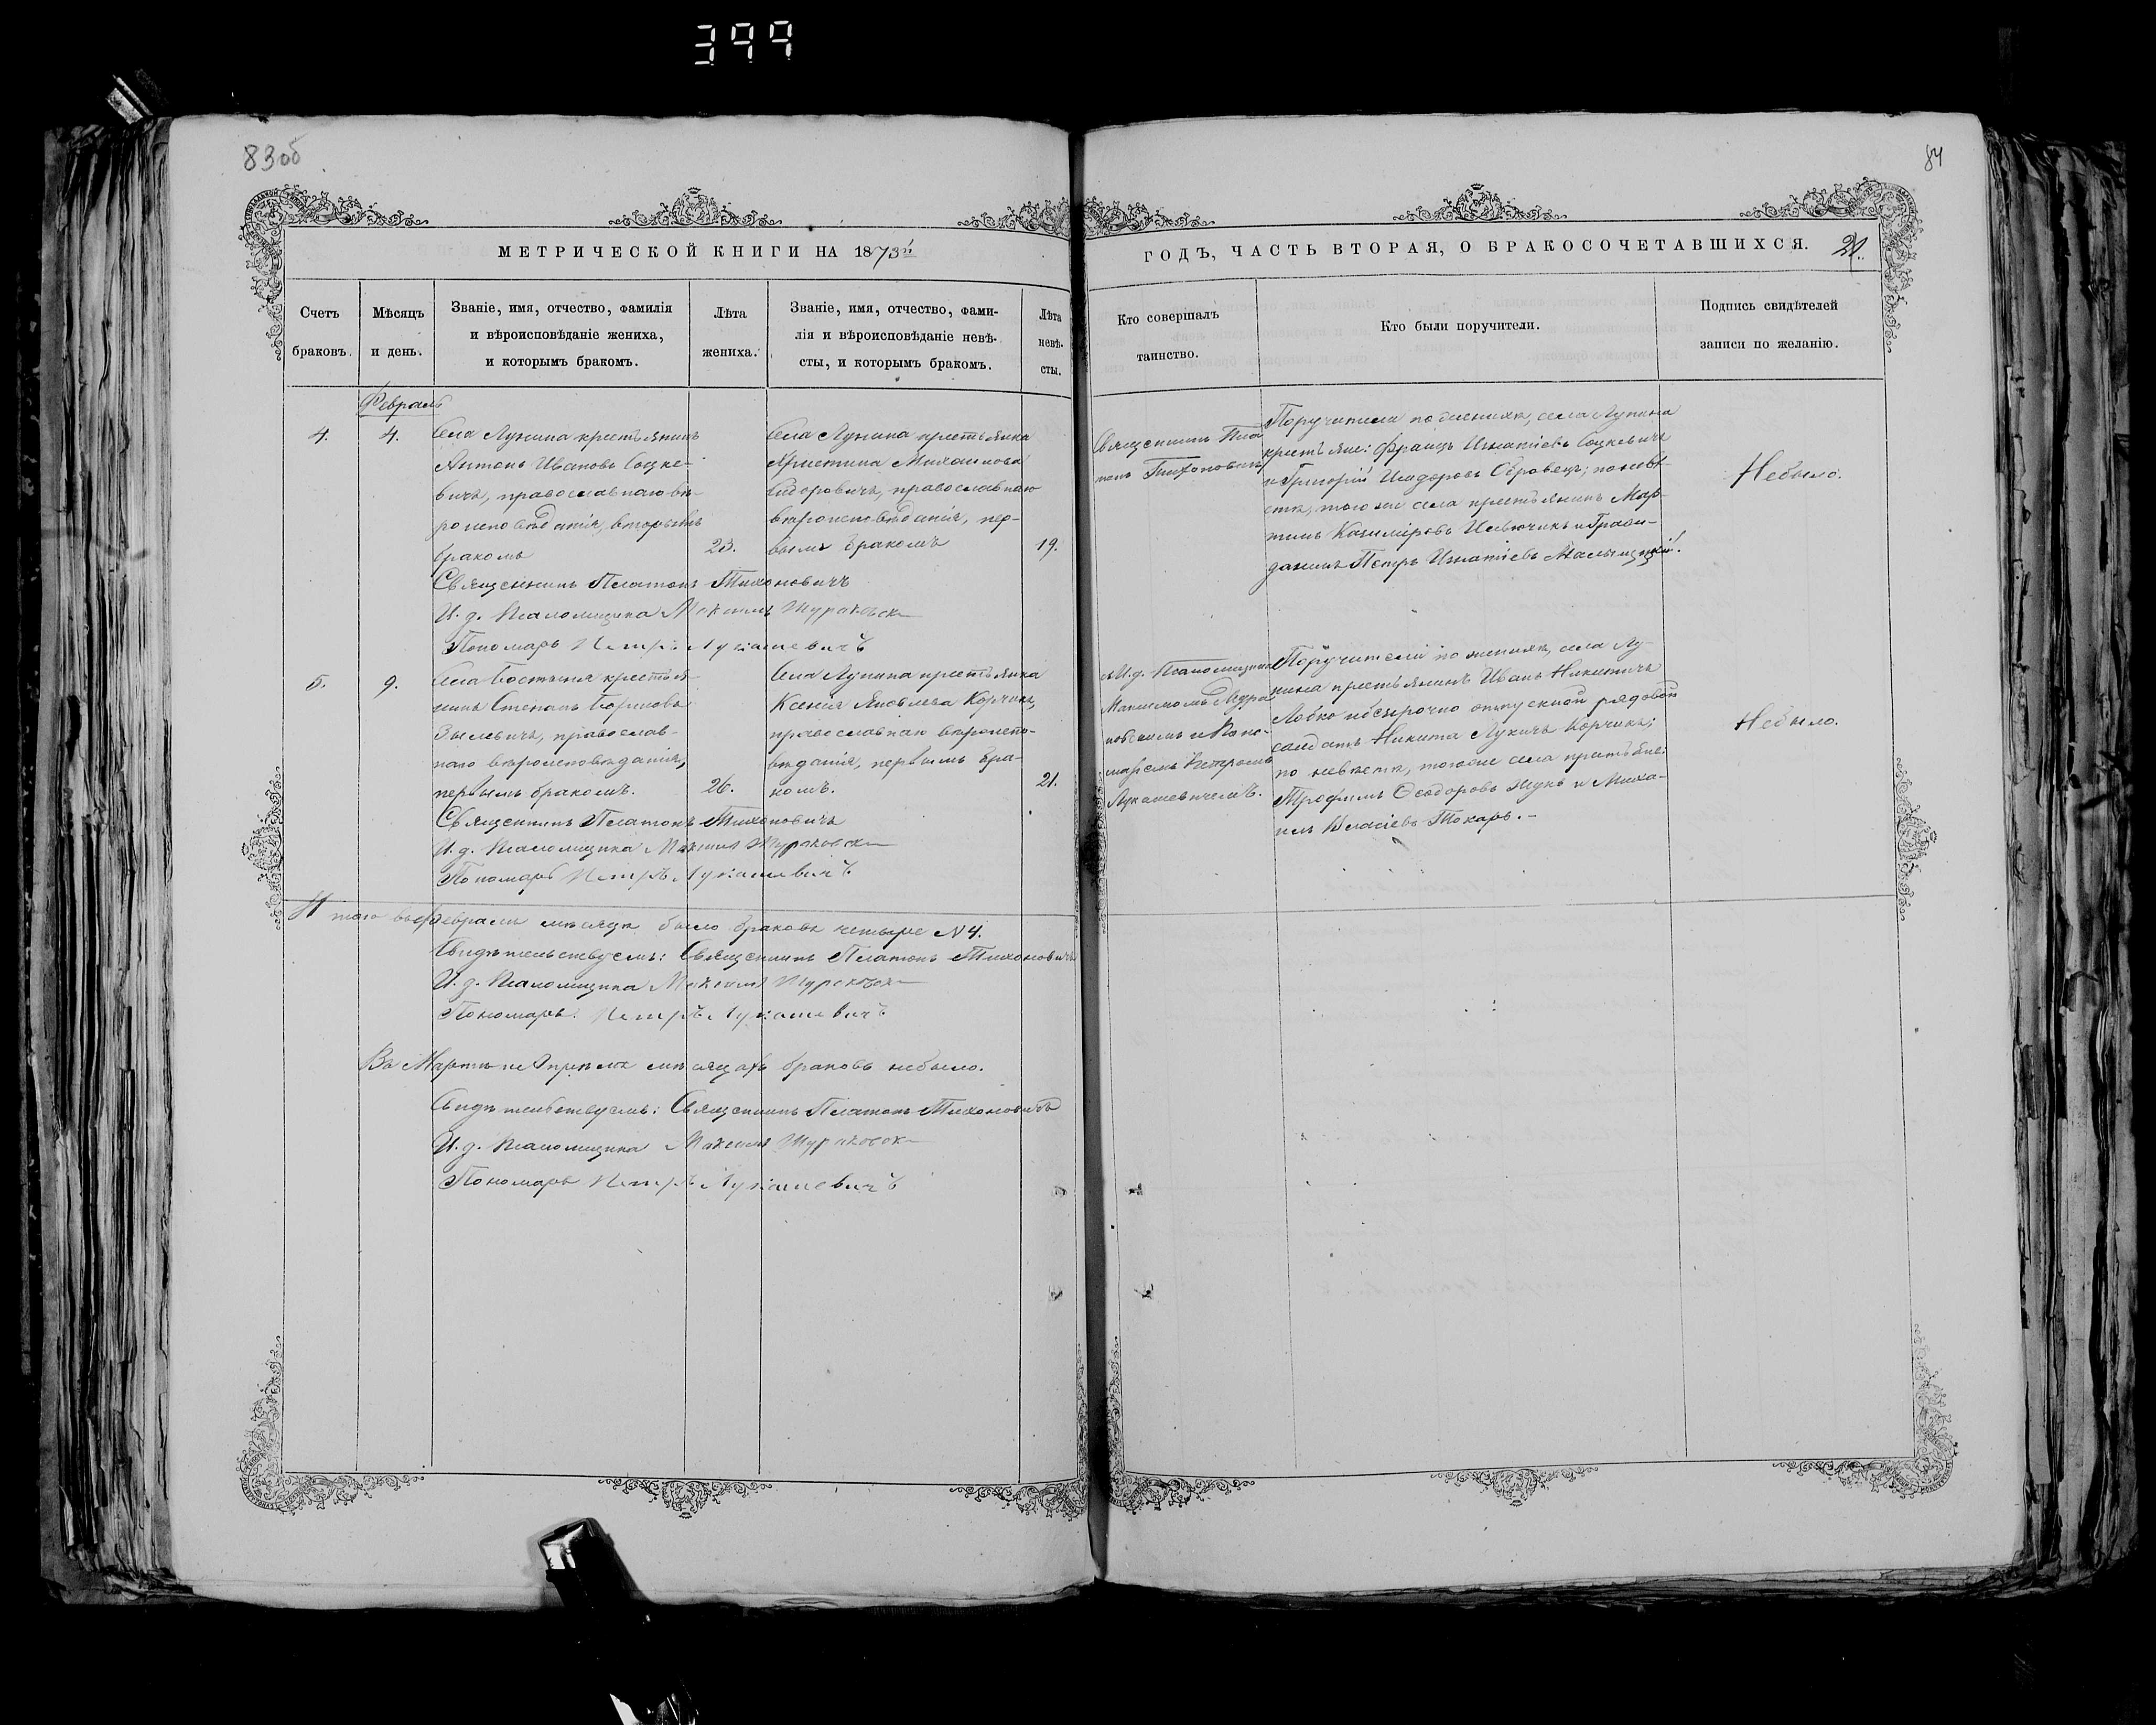 399
83об
84
МЕТРИЧЕСКОЙ КНИГИ НА 1873й
ГОДЪ, ЧАСТЬ ВТОРАЯ, О БРАКОСОЧЕТАВШИХСЯ.
Счетъ браковъ.
Мѣсяцъ и день.
Званіе, имя, отчество, фамилія
и вѣроисповѣданіе жениха,
и которымъ бракомъ.
Лѣта жениха.
Званіе, имя, отчество, фами-
лія и вѣроисповѣданіе невѣ-
сты, и которымъ бракомъ.
Лѣта невѣ-
сты.
Кто совершалъ
таинство.
Кто были поручители.
Подпись свидѣтелей
записи по желанію.
Февраль
4.
4.
Села Лунина крестьянинъ
Антонъ Ивановъ Соцке-
вичъ, православнаго вѣ-
роисповѣданія, вторымъ
бракомъ
23.
Села Лунина крестьянка
Христина Михаилова
Сидоровичъ, православнаго
вѣроисповѣданія, пер-
вымъ бракомъ
19.
Священникъ Пла
тонъ Тихоновичъ
Поручители по женихѣ, села Лунина
крестьяне: Францъ Игнатіевъ Соцкевичъ
и Григорій Исидоровъ Обровецъ; по невѣ-
стѣ, того же села крестьянинъ Мар-
тинъ Казиміровъ и Граж-
данинъ Петръ Игнатіевъ
Небыло.
Священникъ Платонъ Тихоновичъ
И. д. Псаломщика Максимъ
Пономарь Петръ Лукашевичъ
5.
9.
Села Бостыня крестья-
нинъ Степанъ Борисовъ
православ-
наго вѣроисповѣданія,
первымъ бракомъ.
26.
Села Лунина крестьянка
Ксенія Яковлева Корчикъ,
православнаго вѣроиспо-
вѣданія, первымъ бра-
комъ.
21.
И. д. Псаломщика
Максимомъ
и Поно-
маремъ Петромъ
Лукашевичемъ.
Поручители по женихѣ, села Лу-
нина крестьянинъ Иванъ Никитичъ
Лобко и безсрочно отпускной рядовой
солдатъ Никита Лукичъ Корчикъ;
по невѣстѣ, того же села крестьяне:
Трофимъ Ѳеодоровъ Жукъ и Миха-
илъ Власіевъ Токарь.-
Небыло.
Священникъ Платонъ Тихоновичъ
И. д. Псаломщика Максимъ
Пономарь Петръ Лукашевичъ
Итого въ Февралѣ мѣсяцѣ было браковъ четыре N 4.
Свидѣтельствуемъ: Священникъ Платонъ Тихоновичъ
И. д. Псаломщика Максимъ
Пономарь Петръ Лукашевичъ
Въ Мартѣ и Апрѣлѣ мѣсяцахъ браковъ небыло.
Свидѣтельствуемъ: Священникъ Платонъ Тихоновичъ
И. д. Псаломщика Максимъ
Пономарь Петръ Лукашевичъ